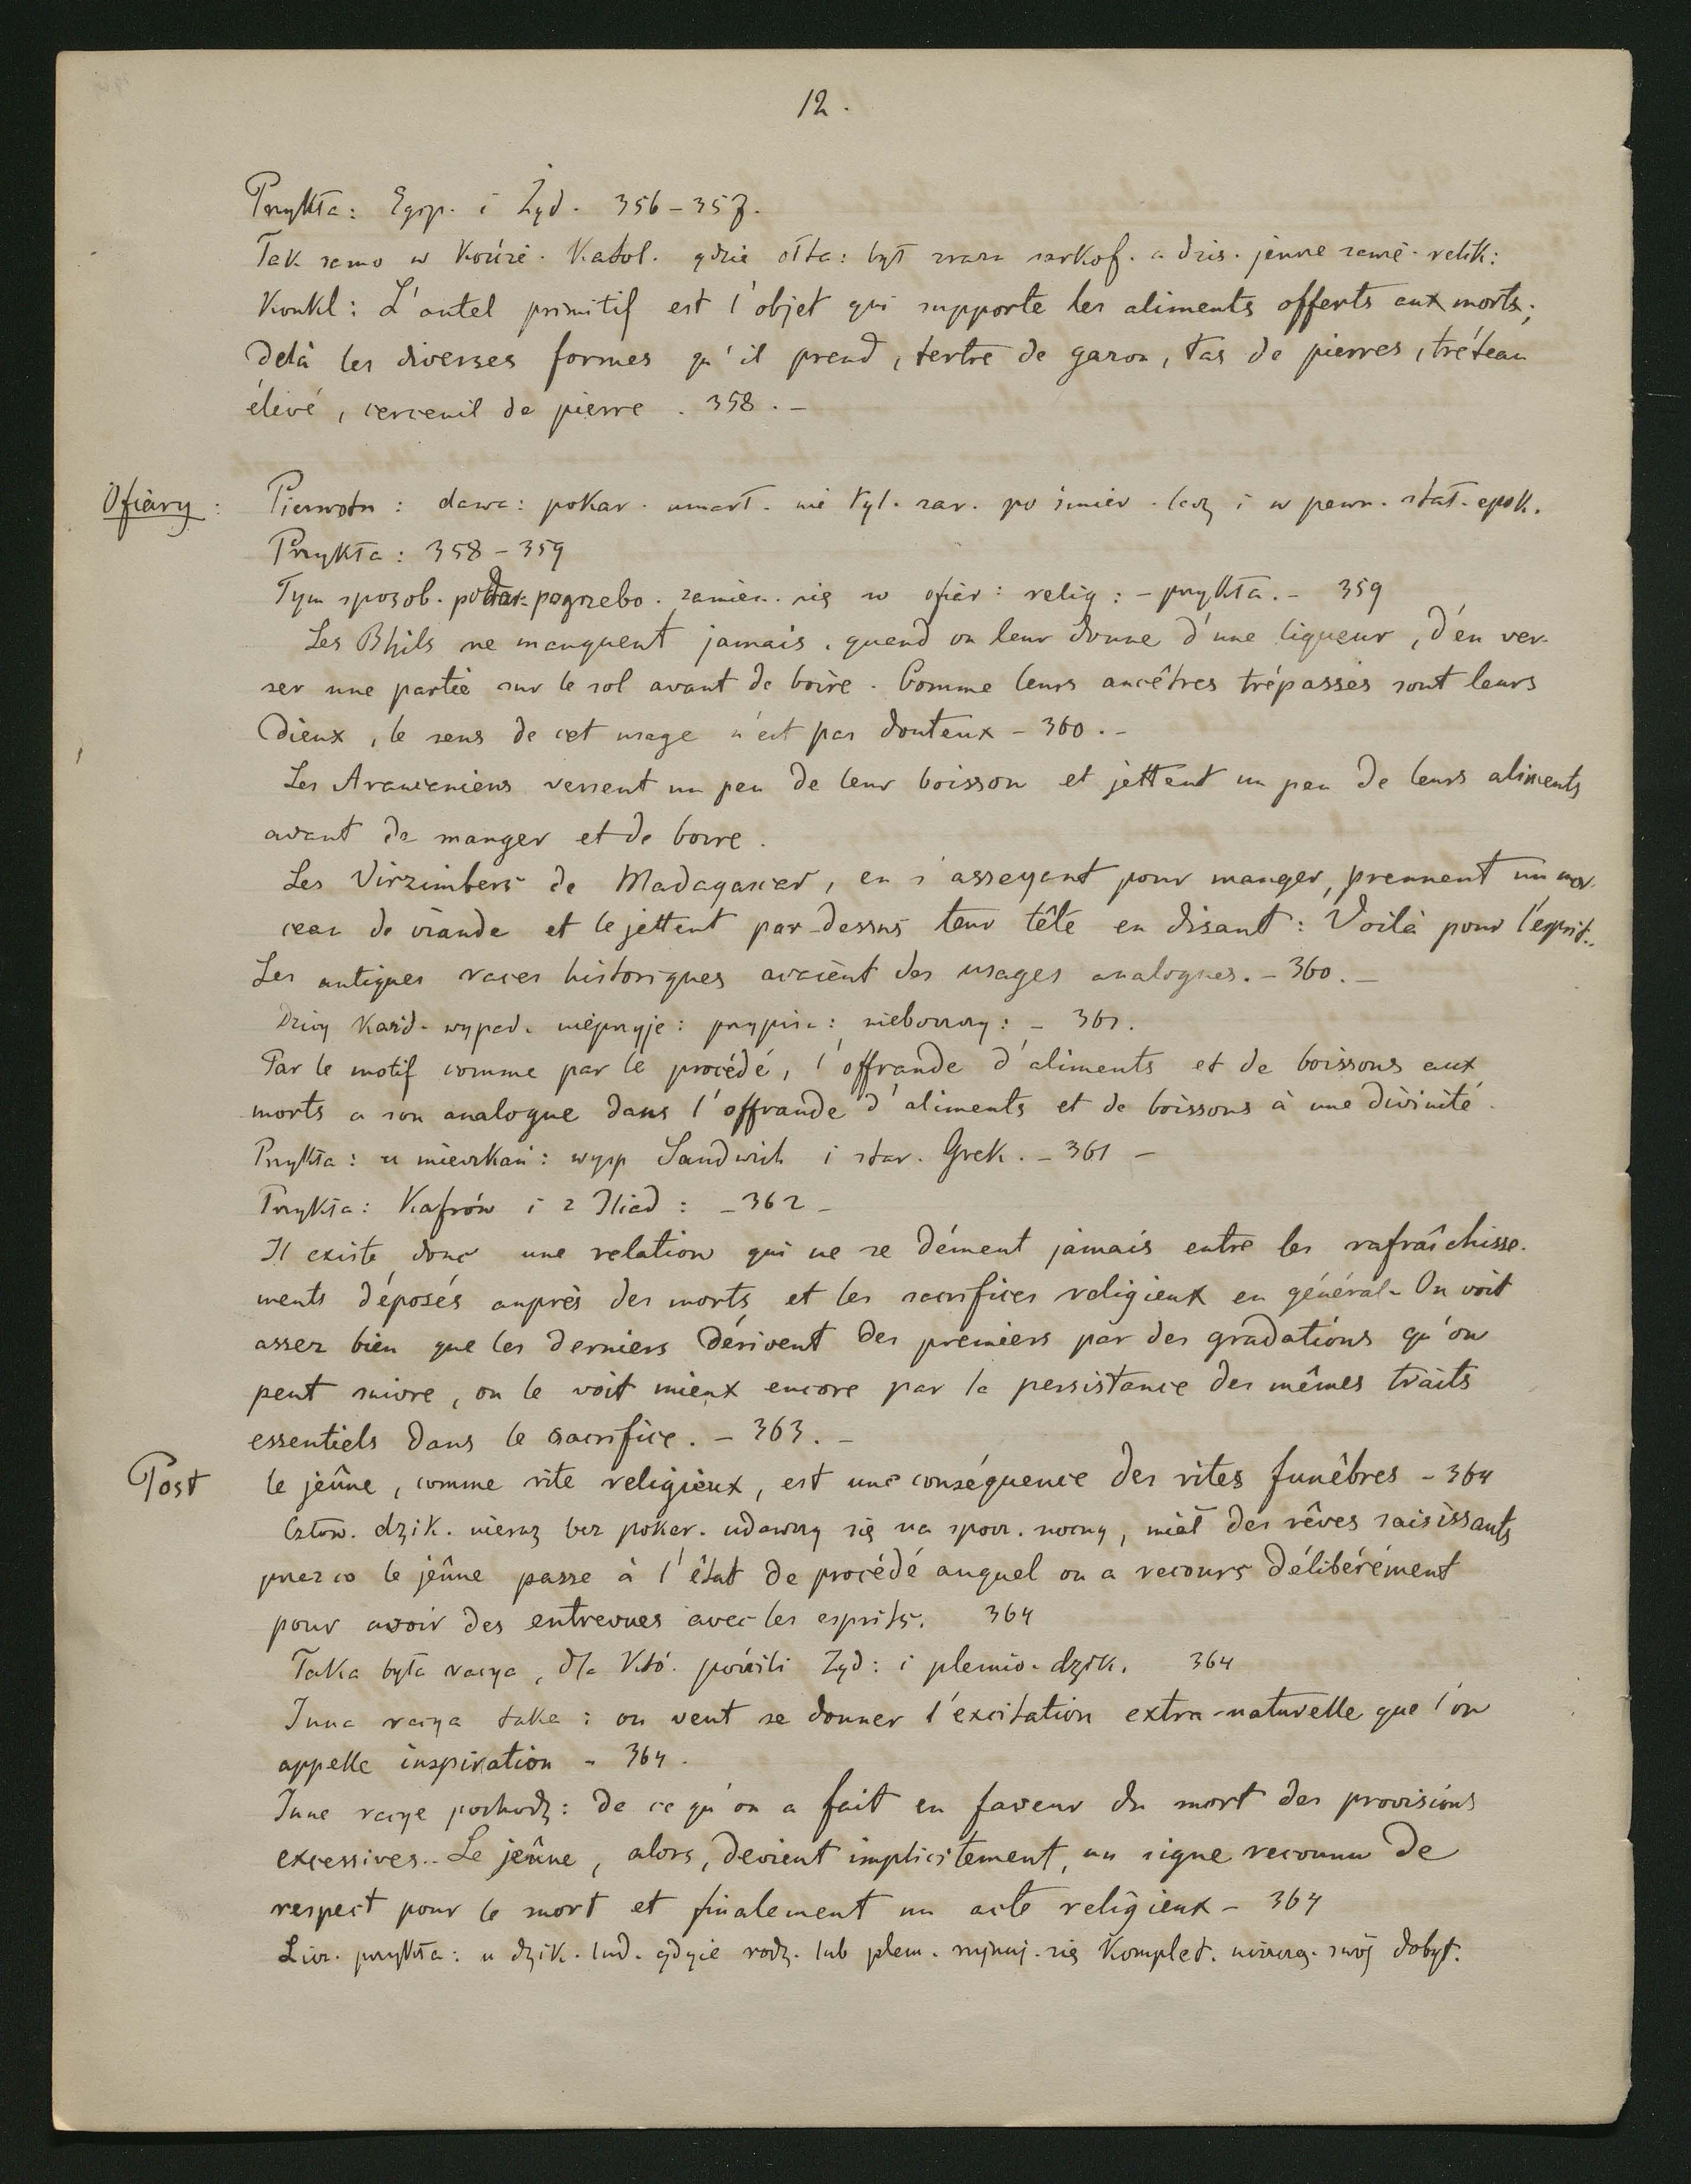 12.
Przykła: Egip. i Żyd. 356-357.
Tak samo w Kości. Katol. gdzie ołta: był zraza sarkof. a dziś. jeszcze
Konkl: L'autel primitif est l'objet qui supporte les aliments offerts aux morts;
delà les diverses formes qu'il prend, tertre de gazon, tas de pierres, tréteau
élevé, cercueil de pierre. 358. -
Ofiary: Pierwotn: dawa: pokar. umarł. nie tyl. zar. po śmier. lecz i w pewn. stał. epok.
Przykła: 358-359
Tym sposob. podar. pogrzebo. zamien. się w ofiar: relig: - przykła. - 359
Les Bhils ne manquent jamais, quand on leur donne d'une liqueur, d'en ver-
ser une partie sur le sol avant de boire. Comme leurs ancêtres trépassés sont leurs
Dieux, le sens de cet usage n'est pas douteux - 360. -
Les Araucaniens versent un peu de leur boisson et jettent un peu de leurs aliments
avant de manger et de boire.
Les Virzimbers de Madagascar, en s'asseyant pour manger, prennent un mor-
ceau de viande et le jettent par-dessus leur tête en disant: Voilà pour l'esprit..
Les antiques races historiques avaient des usages analogues. - 360. -
Dzicy każd. wypad. nieprzyje: przypis: nieboszczy: - 361.
Par le motif comme par le procédé, l'offrande d'aliments et de boissons aux
morts a son analogue dans l'offrande d'aliments et de boissons à une divinité.
Przykła: u mieszkań: wysp Sandwich i star. Grek. - 361 -
Przykła: Kafrów i z Iliad: - 362 -
Il existe donc une relation qui ne se dément jamais entre les rafraîchisse-
ments déposés auprès des morts, et les sacrifices religieux en général. On voit
assez bien que les derniers dérivent des premiers par des gradations qu'on
peut suivre, on le voit mieux encore par la persistance des mêmes traits
essentiels dans le sacrifice. - 363. -
Post le jeûne, comme rite religieux, est une conséquence des rites funèbres - 364
Człow. dzik. nieraz bez pokar. udawszy się na spocz. nocny, miał des rêves saisissants
przez co le jeûne passe à l'état de procédé auquel on a recours délibérément
pour avoir des entrevues avec les esprits. 364
Taka była racya, dla któ. pościli Żyd: i plemio. dzik. 364
Inna racya taka: on veut se donner l'excitation extra-naturelle que l'on
appelle inspiration - 364.
Inne racye pochodz: de ce qu'on a fait en faveur du mort des provisions
excessives.. Le jeûne, alors, devient implicitement, un signe reconnu de
respect pour le mort et finalement un acte religieux - 364
Licz. przykła: u dzik. lud. gdzie rodz. lub plem. rujnuj. się komplet. niszcz. swój dobyt.